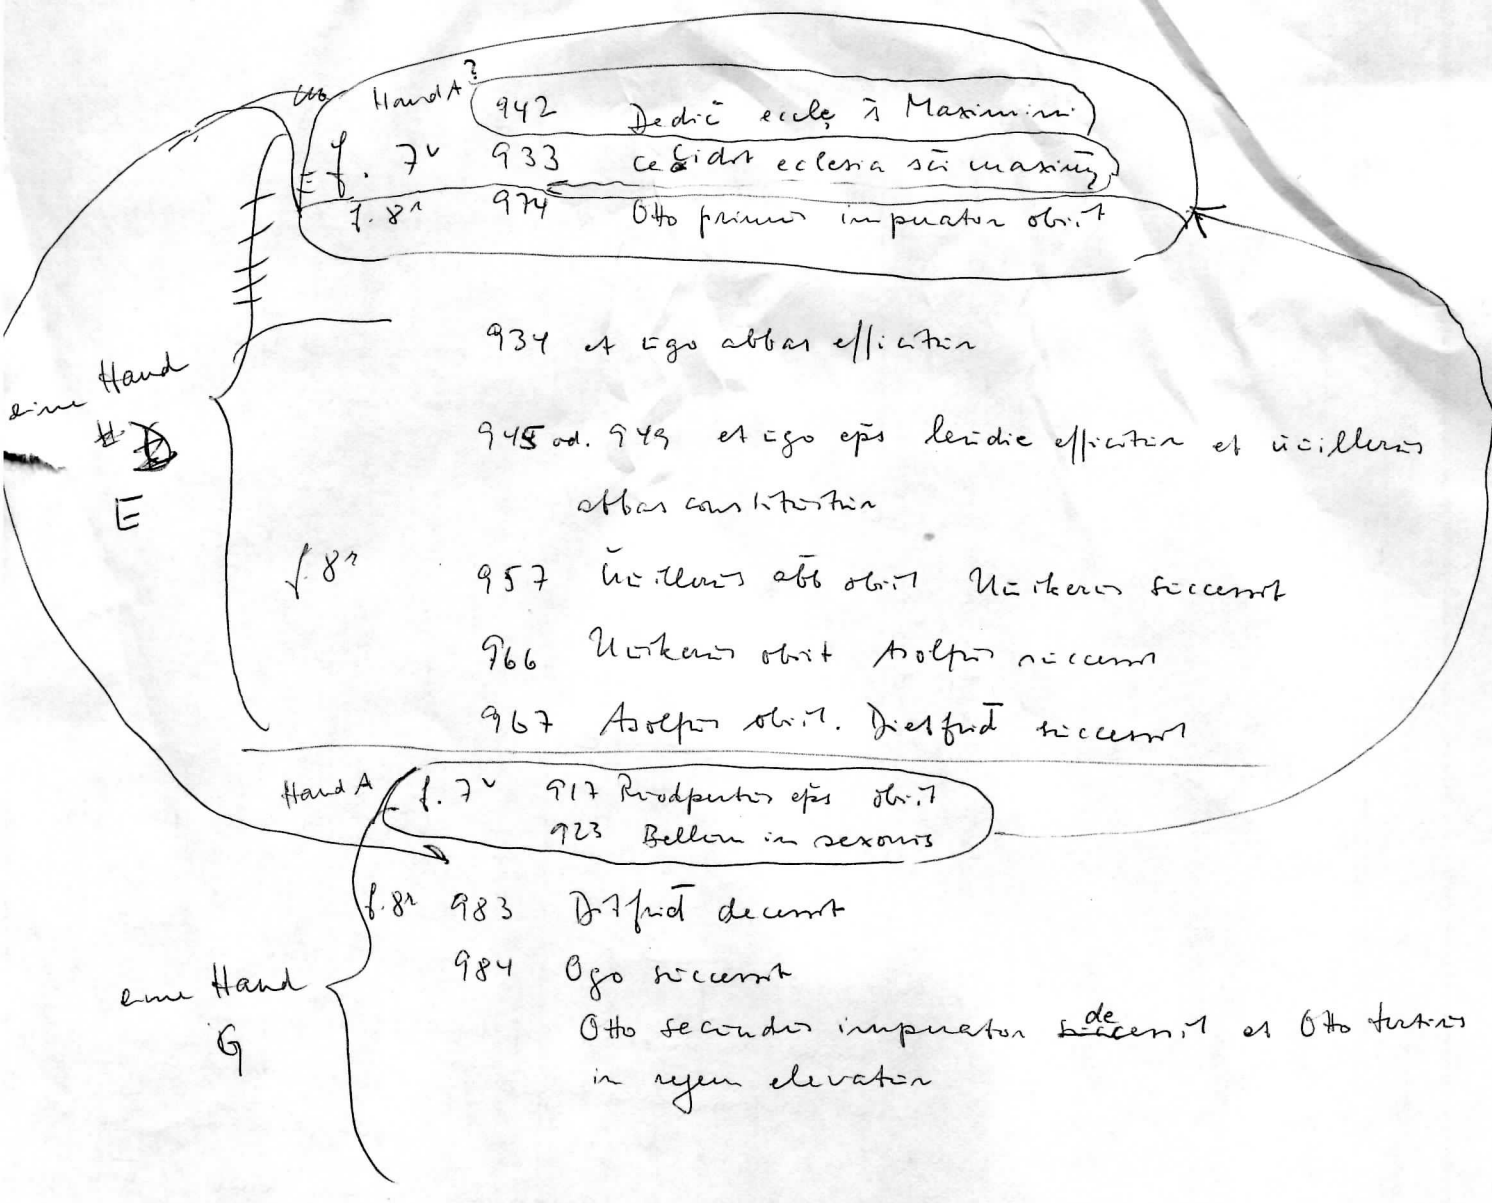 Hand A?
942 Dedic̄ eccle s̄ Maximini
f. 7v 933 cecidit eclesia sc̄i maximī
f. 8r 974 Otto primus imperator obiit
934 et ügo abbas efficitur
eine Hand
945 od. 949 et ügo ep̄s leüdic efficitur et üüillerus
E
abbas constituitur
f. 8r 957 Üüillerus abb̄ obiit Üüikerus successit
966 Üüikerus obiit Asolfus successit
967 Asolfus obiit. Dietfrid̄ successit
Hand A f. 7v 917 Ruodpertus ep̄s obiit
923 Bellum in saxonis
f. 8r 983 Ditfrid̄ decessit
984 Ogo successit
eine Hand
G
Otto secundus imperator decessit et Otto tertius
in regem elevatur